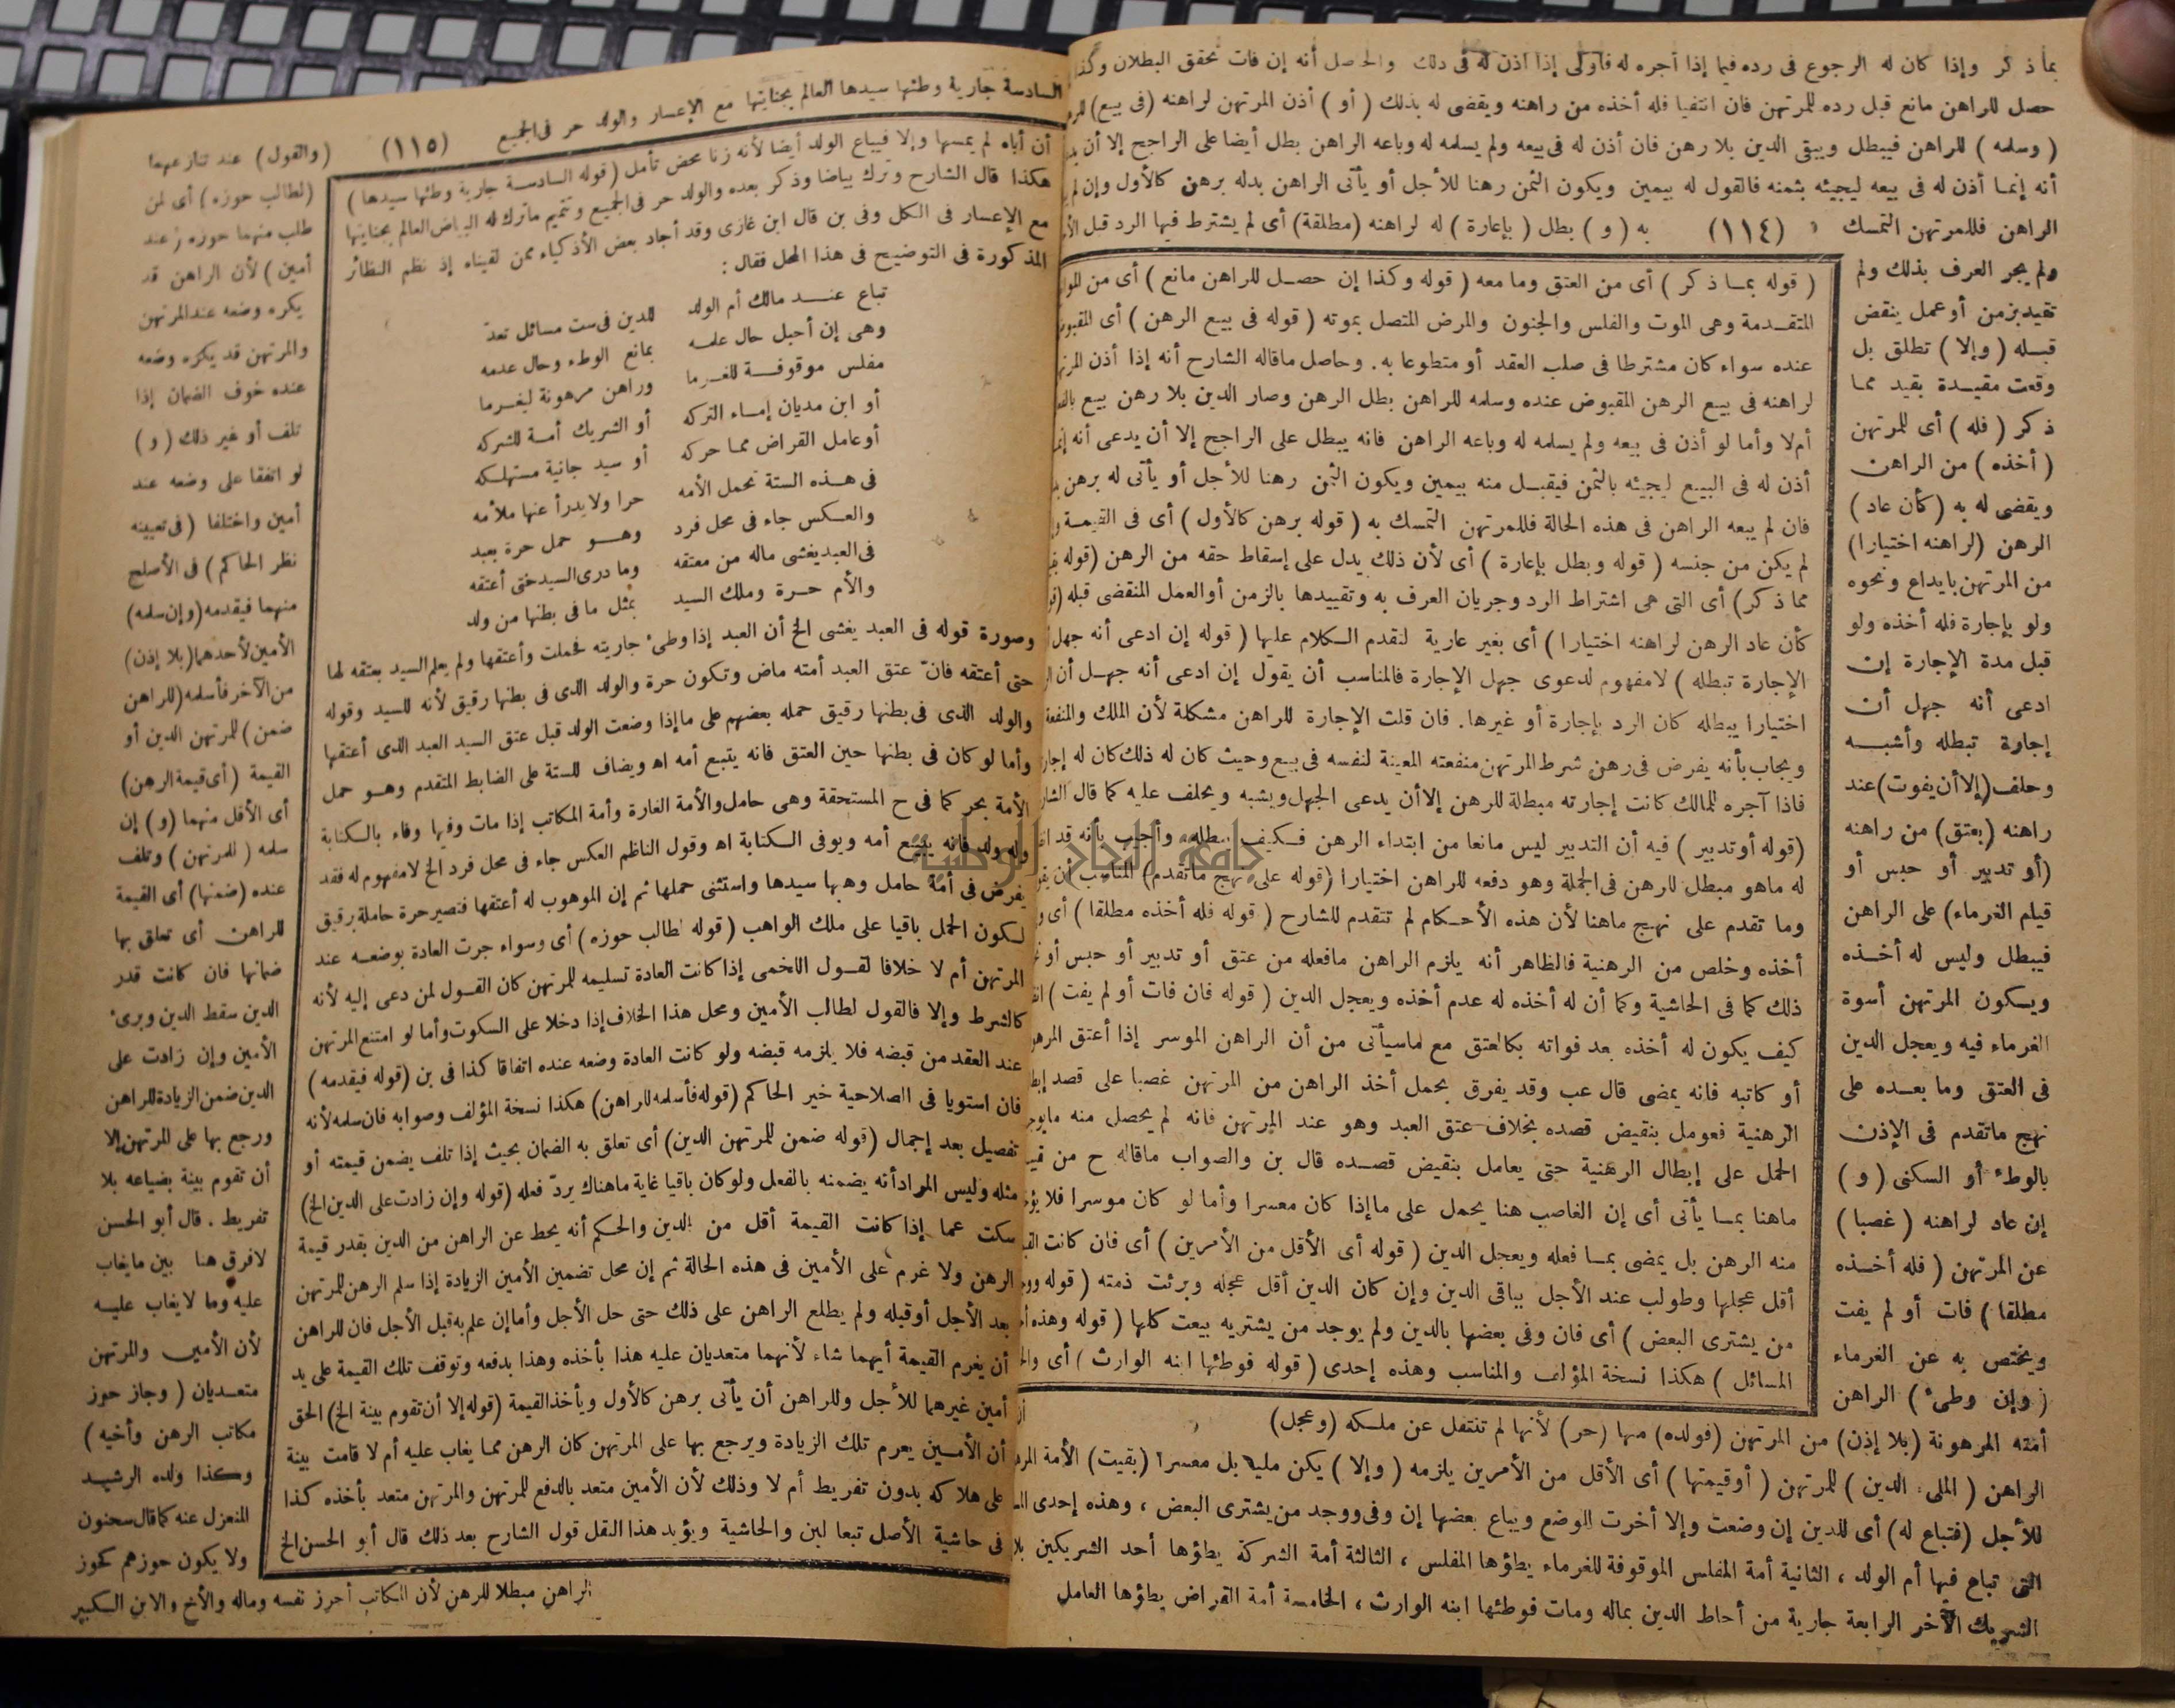 بما ذكر وإذا كان له الرجوع فى رده فيما إذا أجره له فأولى إذا أذن له فى ذلك والحاصل أنه إن فات تحقق البطلان وكذا
حصل للراهن مانع قبل رده للمرتهن فان انتفيا فله أخذه من راهنه ويقضى له بذلك ( أو ) أذن المرتهن لراهنه (فى بيع)
( وسلمه ) للراهن فيبطل ويبقى الدين بلا رهن فان أذن له فى بيعه ولم يسلمه له وباعه الراهن بطل أيضا على الراجح إلا أن
أنه إنما أذن له فى بيعه ليجيئه بثمنه فالقول له بيمين ويكون الثمن رهنا للأجل أو يأتى الراهن بدله برهن كالأول وإن لم
الراهن فللمرتهن التمسك (١١٤) به ( و ) بطل ( بإعارة ) له لراهنه (مطلقة) أى لم يشترط فيها الرد قبل
ولم يجر العرف بذلك ولم
تقيد بزمن أو عمل ينقض
قبله ( وإلا ) تطلق بل
وقعت مقيدة بقيد مما
ذكر ( فله ) أى للمرتهن
( أخذه ) من الراهن
ويقضى له به ( كأن عاد )
الرهن (لراهنه اختيارا)
من المرتهن بايداع ونحوه
ولو بإجارة فله أخذه ولو
قبل مدة الإجارة إن
ادعى أنه جهل أن
إجارة تبطله وأشبه
وحلف (إلا أن يفوت) عند
راهنه (بعتق) من راهنه
(أو تدبير أو حبس أو
قيام الغرماء) على الراهن
فيبطل وليس له أخذه
ويكون المرتهن أسوة
الغرماء فيه ويعجل الدين
فى العتق وما بعده على
نهج ماتقدم فى الإذن
بالوطء أو السكنى ( و )
إن عاد لراهنه ( غصبا )
عن المرتهن ( فله أخذه
مطلقا ) فات أو لم يفت
ويختص به عن الغرماء
( وإن وطئ ) الراهن
( قوله بما ذكر ) أى من العتق وما معه ( قوله وكذا إن حصل للراهن مانع ) أى من
المتقدمة وهى الموت والفلس والجنون والمرض المتصل بموته ( قوله فى بيع الرهن ) أى
عنده سواء كان مشترطا فى صلب العقد أو متطوعا به. وحاصل ماقاله الشارح أنه إذا أذن
لراهنه فى بيع الرهن المقبوض عنده وسلمه للراهن بطل الرهن وصار الدين بلا رهن بيع
أم لا وأما لو أذن فى بيعه ولم يسلمه له وباعه الراهن فانه يبطل على الراجح إلا أن يدعى أنه
أذن له فى البيع ليجيئه بالثمن فيقبل منه بيمين ويكون الثمن رهنا للأجل أو يأتى له برهن
فان لم يبعه الراهن فى هذه الحالة فللمرتهن التمسك به ( قوله برهن كالأول ) أى فى القيمة
لم يكن من جنسه ( قوله وبطل بإعارة ) أى لأن ذلك يدل على إسقاط حقه من الرهن (قوله
مما ذكر) أى التى هى اشتراط الرد وجريان العرف به وتقييدها بالزمن أو العمل المنقضى قبله
كأن عاد الرهن لراهنه اختيارا ) أى بغير عارية لتقدم الكلام عليها ( قوله إن ادعى أنه جهل
الإجارة تبطله ) لامفهوم لدعوى جهل الإجارة فالمناسب أن يقول إن ادعى أنه جهل أن
اختيارا يبطله كان الرد بإجارة أو غيرها. فان قلت الإجارة للراهن مشكلة لأن الملك والمنفعة
ويجاب بأنه يفرض فى رهن شرط المرتهن منفعته المعينة لنفسه فى بيع وحيث كان له ذلك كان له
فاذا آجره للمالك كانت إجارته مبطلة للرهن إلا أن يدعى الجهل ويشبه ويحلف عليه كما قال
(قوله أو تدبير) فيه أن التدبير ليس مانعا من ابتداء الرهن فكيف يبطله وأجيب بأنه قد
له ماهو مبطل للرهن فى الجملة وهو دفعه للراهن اختيارا (قوله على نهج ماتقدم) المناسب أن
وما تقدم على نهج ماهنا لأن هذه الأحكام لم تتقدم للشارح ( قوله فله أخذه مطلقا ) أى
أخذه وخلص من الرهنية فالظاهر أنه يلزم الراهن مافعله من عتق أو تدبير أو حبس أو
ذلك كما فى الحاشية وكما أن له أخذه له عدم أخذه ويعجل الدين ( قوله فان فات أو لم يفت )
كيف يكون له أخذه بعد فواته بكالعتق مع ماسيأتى من أن الراهن الموسر إذا أعتق
أو كاتبه فانه يمضى قال عب وقد يفرق بحمل أخذ الراهن من المرتهن غصبا على قصد
الرهنية فعومل بنقيض قصده بخلاف عتق العبد وهو عند المرتهن فانه لم يحصل منه
الحمل على إبطال الرهنية حتى يعامل بنقيض قصده قال بن والصواب ماقاله ح من
ماهنا بما يأتى أى إن الغاصب هنا يحمل على ماإذا كان معسرا وأما لو كان موسرا فلا
منه الرهن بل يمضى بما فعله ويعجل الدين ( قوله أى الأقل من الأمرين ) أى فان كانت
أقل عجلها وطولب عند الأجل بباقى الدين وإن كان الدين أقل عجله وبرئت ذمته ( قوله
من يشترى البعض ) أى فان وفى بعضها بالدين ولم يوجد من يشتريه بيعت كلها ( قوله وهذه
المسائل ) هكذا نسخة المؤلف والمناسب وهذه إحدى ( قوله فوطئها ابنه الوارث ) أى
أمته المرهونة (بلا إذن) من المرتهن (فولده) منها (حر) لأنها لم تنتقل عن ملكه (وعجل)
الراهن ( الملىء الدين ) للمرتهن ( أو قيمتها ) أى الأقل من الأمرين يلزمه ( وإلا ) يكن مليا بل معسرا (بقيت) الأمة
للأجل (فتباع له) أى للدين إن وضعت وإلا أخرت للوضع ويباع بعضها إن وفى ووجد من يشترى البعض ، وهذه إحدى
التى تباع فيها أم الولد ، الثانية أمة المفلس الموقوفة للغرماء يطؤها المفلس ، الثالثة أمة الشركة يطؤها أحد الشريكين بلا
الشريك الآخر الرابعة جارية من أحاط الدين بماله ومات فوطئها ابنه الوارث ، الخامسة أمة القراض يطؤها العامل
السادسة جارية وطئها سيدها العالم بجنايتها مع الإعسار والولد حر فى الجميع (١١٥) (والقول) عند تنازعهما
(لطالب حوزه) أى لمن
طلب منهما حوزه (عند
أمين) لأن الراهن قد
يكره وضعه عند المرتهن
والمرتهن قد يكره وضعه
عنده خوف الضمان إذا
تلف أو غير ذلك ( و )
لو اتفقا على وضعه عند
أمين واختلفا (فى تعيينه
نظر الحاكم) فى الأصلح
منهما فيقدمه (وإن سلمه)
الأمين لأحدهما (بلا إذن)
من الآخر فأسلمه (للراهن
ضمن) للمرتهن الدين أو
القيمة (أى قيمة الرهن)
أى الأقل منهما (و) إن
سلمه (للمرتهن) وتلف
عنده (ضمنها) أى القيمة
للراهن أى تعلق بها
ضمانها فان كانت قدر
الدين سقط الدين وبرئ
الأمين وإن زادت على
الدين ضمن الزيادة للراهن
ورجع بها على المرتهن إلا
أن تقوم بينة بضياعه بلا
تفريط . قال أبو الحسن
لافرق هنا بين مايغاب
عليه وما لا يغاب عليه
لأن الأمين والمرتهن
متعديان ( وجاز حوز
مكاتب الرهن وأخيه )
وكذا ولده الرشيد
المنعزل عنه كما قال سحنون
ولا يكون حوزهم كحوز
أن أباه لم يمسها وإلا فيباع الولد أيضا لأنه زنا محض تأمل (قوله السادسة جارية وطئها سيدها)
هكذا قال الشارح وترك بياضا وذكر بعده والولد حر فى الجميع وتتميم ماترك له البياض العالم بجنايتها
مع الإعسار فى الكل وفى بن قال ابن غازى وقد أجاد بعض الأذكياء ممن لقيناه إذ نظم النظائر
المذكورة فى التوضيح فى هذا المحل فقال :
تباع عند مالك أم الولد للدين فى ست مسائل تعد
وهى إن أحبل حال علمه بمانع الوطء وحال عدمه
مفلس موقوفة للغرما وراهن مرهونة ليغرما
أو ابن مديان إماء التركه أو الشريك أمة للشركه
أو عامل القراض مما حركه أو سيد جانية مستهلكه
فى هذه الستة تحمل الأمه حرا ولا يدرأ عنها ملأمه
والعكس جاء فى محل فرد وهو حمل حرة بعبد
فى العبد يغشى ماله من معتقه وما درى السيد حتى أعتقه
والأم حرة وملك السيد بمثل ما فى بطنها من ولد
وصورة قوله فى العبد يغشى الخ أن العبد إذا وطئ جاريته فحملت وأعتقها ولم يعلم السيد بعتقه لها
حتى أعتقه فان عتق العبد أمته ماض وتكون حرة والولد الذى فى بطنها رقيق لأنه للسيد وقوله
والولد الذى فى بطنها رقيق حمله بعضهم على ماإذا وضعت الولد قبل عتق السيد العبد الذى أعتقها
وأما لو كان فى بطنها حين العتق فانه يتبع أمه اه ويضاف للستة على الضابط المتقدم وهو حمل
الأمة بحر كما فى ح المستحقة وهى حامل والأمة الغارة وأمة المكاتب إذا مات وفيها وفاء بالكتابة
وله ولد فانه يتبع أمه ويوفى الكتابة اه وقول الناظم العكس جاء فى محل فرد الخ لامفهوم له فقد
يفرض فى أمة حامل وهبها سيدها واستثنى حملها ثم إن الموهوب له أعتقها فتصير حرة حاملة برقيق
لكون الحمل باقيا على ملك الواهب (قوله لطالب حوزه) أى وسواء جرت العادة بوضعه عند
المرتهن أم لا خلافا لقول اللخمى إذا كانت العادة تسليمه للمرتهن كان القول لمن دعى إليه لأنه
كالشرط وإلا فالقول لطالب الأمين ومحل هذا الخلاف إذا دخلا على السكوت وأما لو امتنع المرتهن
عند العقد من قبضه فلا يلزمه قبضه ولو كانت العادة وضعه عنده اتفاقا كذا فى بن (قوله فيقدمه)
فان استويا فى الصلاحية خير الحاكم (قوله فأسلمه للراهن) هكذا نسخة المؤلف وصوابه فان سلمه لأنه
تفصيل بعد إجمال (قوله ضمن للمرتهن الدين) أى تعلق به الضمان بحيث إذا تلف يضمن قيمته أو
مثله وليس المراد أنه يضمنه بالفعل ولو كان باقيا غاية ماهناك يرد فعله (قوله وإن زادت على الدين الخ)
سكت عما إذا كانت القيمة أقل من الدين والحكم أنه يحط عن الراهن من الدين بقدر قيمة
الرهن ولا غرم على الأمين فى هذه الحالة ثم إن محل تضمين الأمين الزيادة إذا سلم الرهن للمرتهن
بعد الأجل أو قبله ولم يطلع الراهن على ذلك حتى حل الأجل وأما إن علم به قبل الأجل فان للراهن
أن يغرم القيمة أيهما شاء لأنهما متعديان عليه هذا بأخذه وهذا بدفعه وتوقف تلك القيمة على يد
أمين غيرهما للأجل وللراهن أن يأتى برهن كالأول ويأخذ القيمة (قوله إلا أن تقوم بينة الخ) الحق
أن الأمين يغرم تلك الزيادة ويرجع بها على المرتهن كان الرهن مما يغاب عليه أم لا قامت بينة
على هلاكه بدون تفريط أم لا وذلك لأن الأمين متعد بالدفع للمرتهن والمرتهن متعد بأخذه كذا
فى حاشية الأصل تبعا لبن والحاشية ويؤيد هذا النقل قول الشارح بعد ذلك قال أبو الحسن الخ
الراهن مبطلا للرهن لأن المكاتب أحرز نفسه وماله والأخ والابن الكبير
جامعة النجاح الوطنية